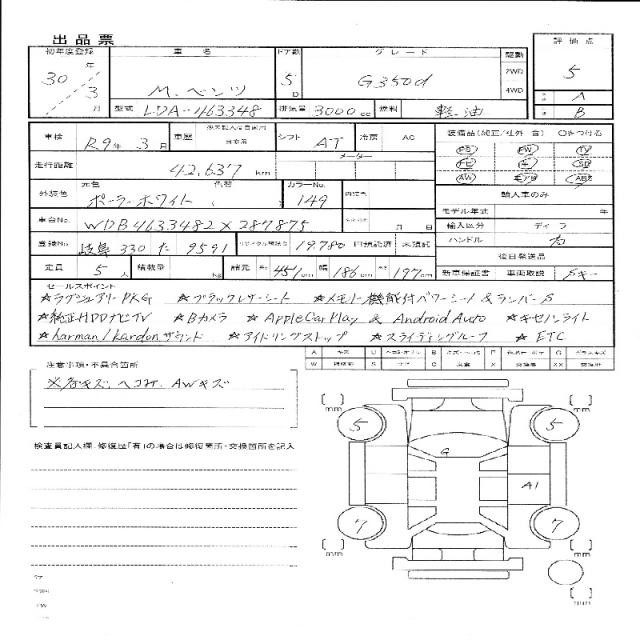 出品票
初年度登録 車名 ドア数 グレード 駆動 評価点
30年 3月 M.ベンツ 5D G350d 2WD 4WD 5
型式 LDA-463348 排気量 3000cc 燃料 軽油 A B
車検 R9年 3月 車歴 シフト AT 冷房 AC 装備品(純正/社外 含) ○をつける
走行距離 メーター 42,637 km PS PW TV
外装色 元色 ポーラーホワイト 色替 カラーNo. 149 AW ABS
輸入車のみ
車台No. WDB4633482X287875 月 日 モデル年式 年
輸入区分 ディーラー
登録No. 岐阜 330 た 9591 リサイクル預託金 19,780 円 預託済 未預託 ハンドル 右
後日発送品
定員 5人 積載量 kg 諸元 長 451cm 幅 186cm 高 197cm 新車保証書 車両取説 Sキー
セールスポイント
☆ラグジュアリーPKG ☆ブラックレザーシート ☆メモリー機能付パワーシート&ランバーS
☆純正HDDナビTV ☆Bカメラ ☆Apple CarPlay & Android Auto ☆キセノンライト
☆harman/kardonサウンド ☆アイドリングストップ ☆スライディングルーフ ☆ETC
A キズ U B F G ガラスキズ
W S C X XX
注意事項・不具合箇所
※各キズ、ヘコミ、AWキズ
検査員記入欄、修復歴「有」の場合は修復箇所・交換箇所を記入
mm mm
5 5
G
A1
7 7
mm mm
mm